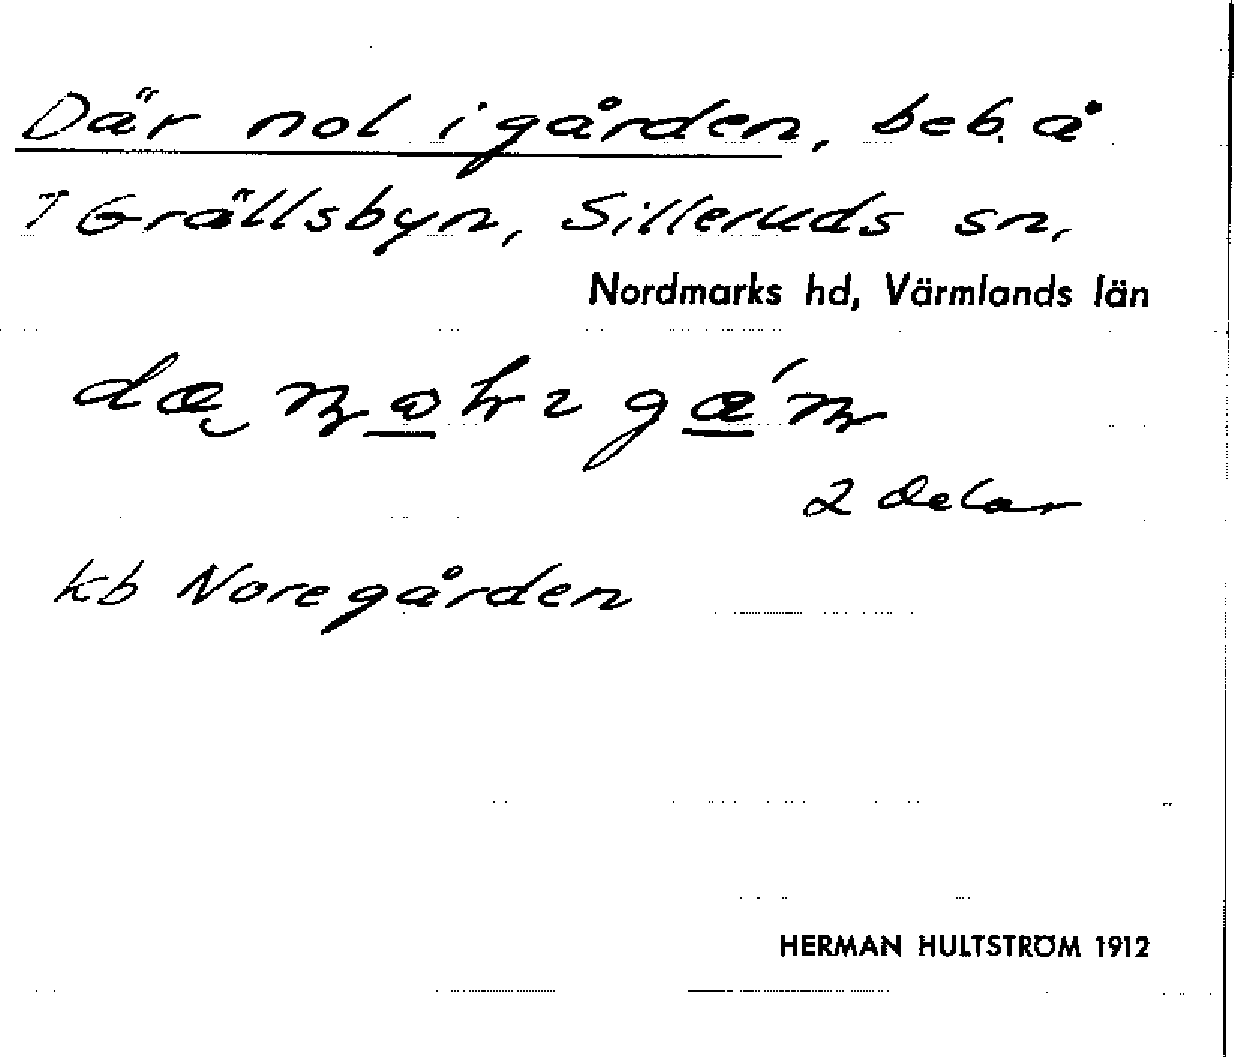 Där nol i gården, beb. å
1 Grällsbyn, Silleruds sn,
Nordmarks hd, Värmlands län
2 delar
kb Noregården
HERMAN HULTSTRÖM 1912